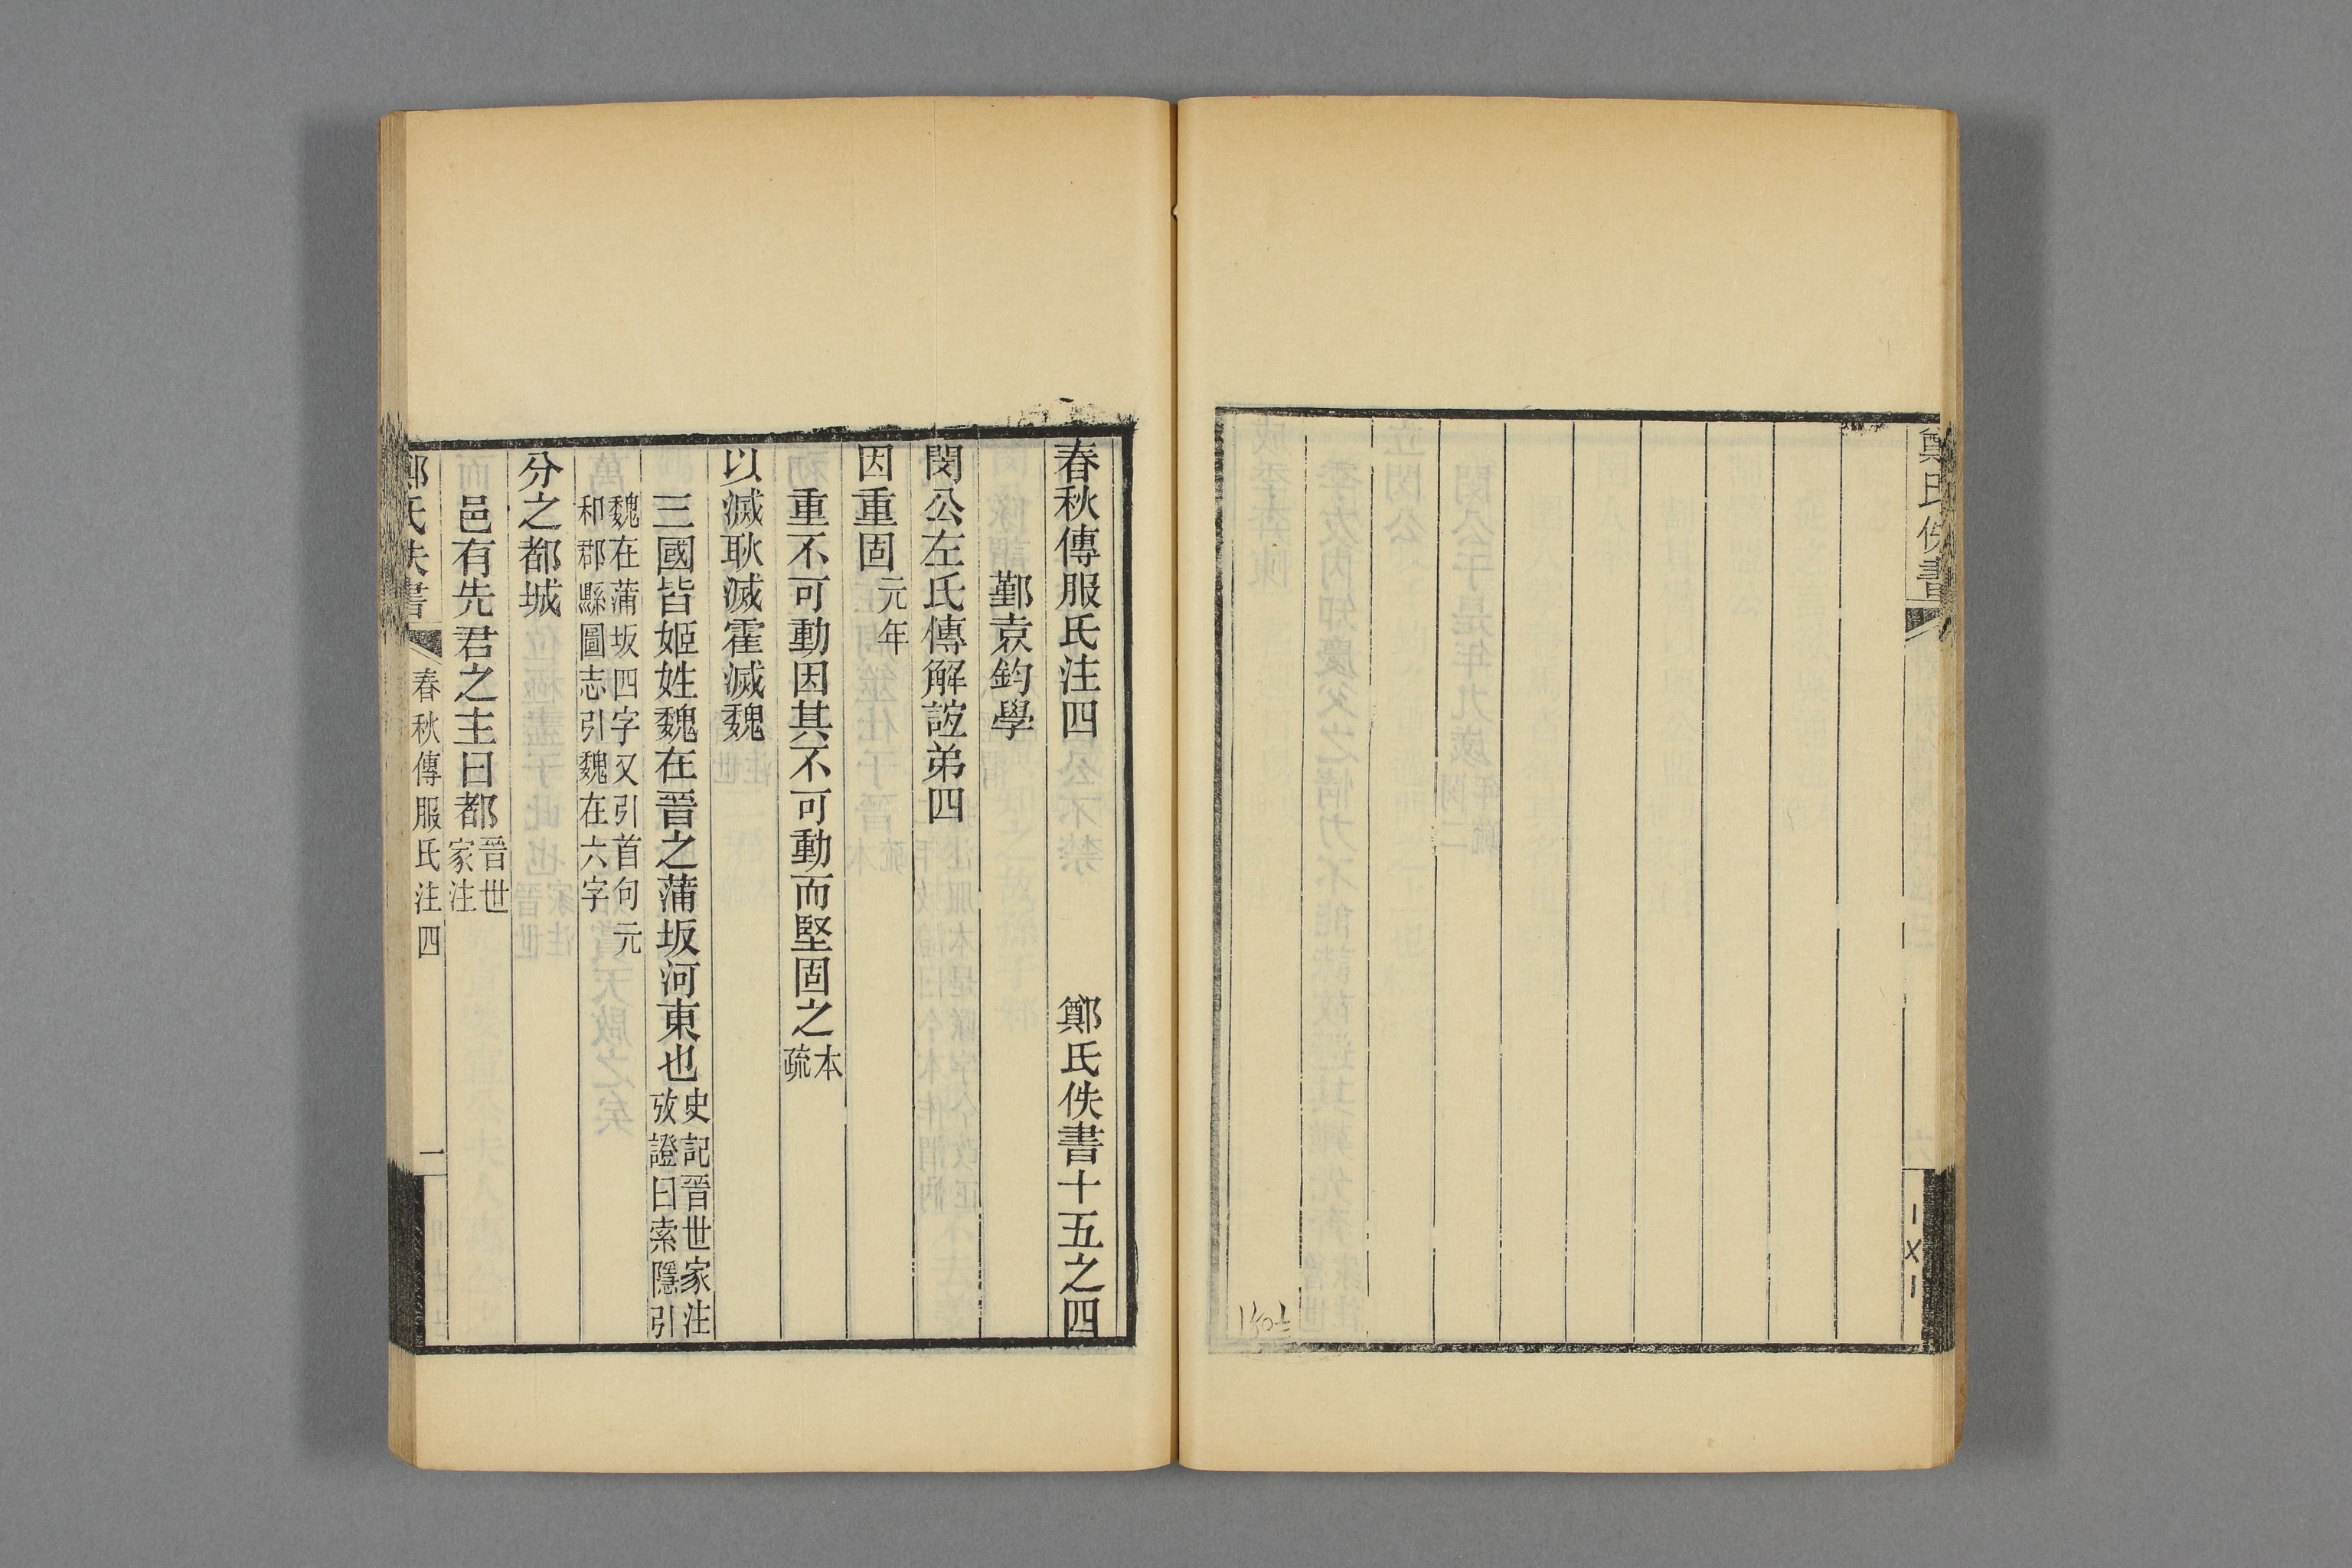 鄭氏佚書
春秋傳服氏注四　鄭氏佚書十五之四
鄞袁鈞學
閔公左氏傳解誼弟四
因重固元年
重不可動因其不可動而堅固之本疏
以滅耿滅霍滅魏
三國皆姬姓魏在晉之蒲坂河東也史記晉世家注
攷證曰索隱引
魏在蒲坂四字又引首句元
和郡縣圖志引魏在六字
分之都城
邑有先君之主曰都晉世家注
鄭氏佚書　春秋傳服氏注四　一